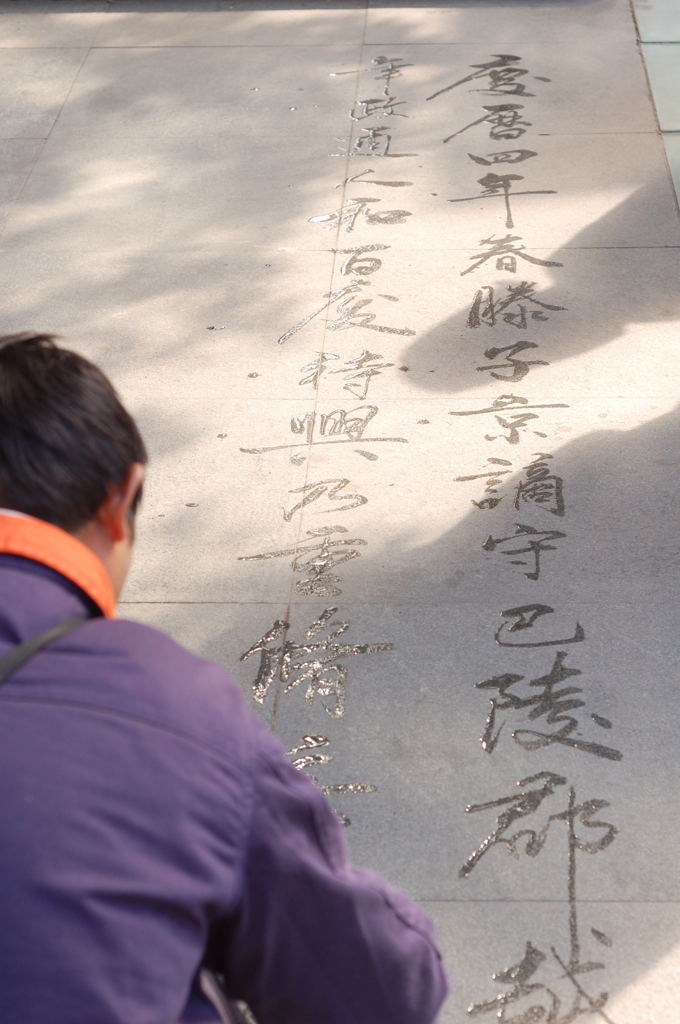 慶曆四年春滕子京謫守巴陵郡越
年政通人和百廢待興乃重脩